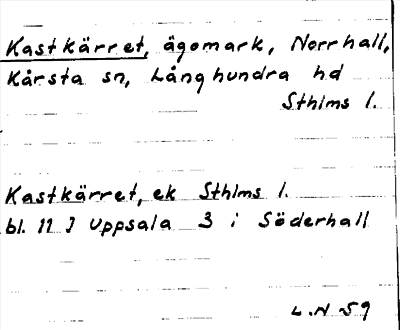 Kastkärret, ägomark, Norrhall,
Kårsta sn, Långhundra hd
Sthlms l.
Kastkärret, ek Sthlms l.
bl. 11 J Uppsala 3 i Söderhall
L.N 59